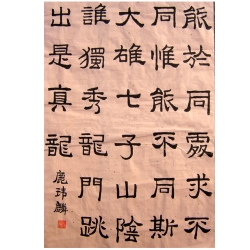 能於同處求不
同惟能不同斯
大雄七子山陰
誰獨秀龍門跳
出是真龍
瑋麟